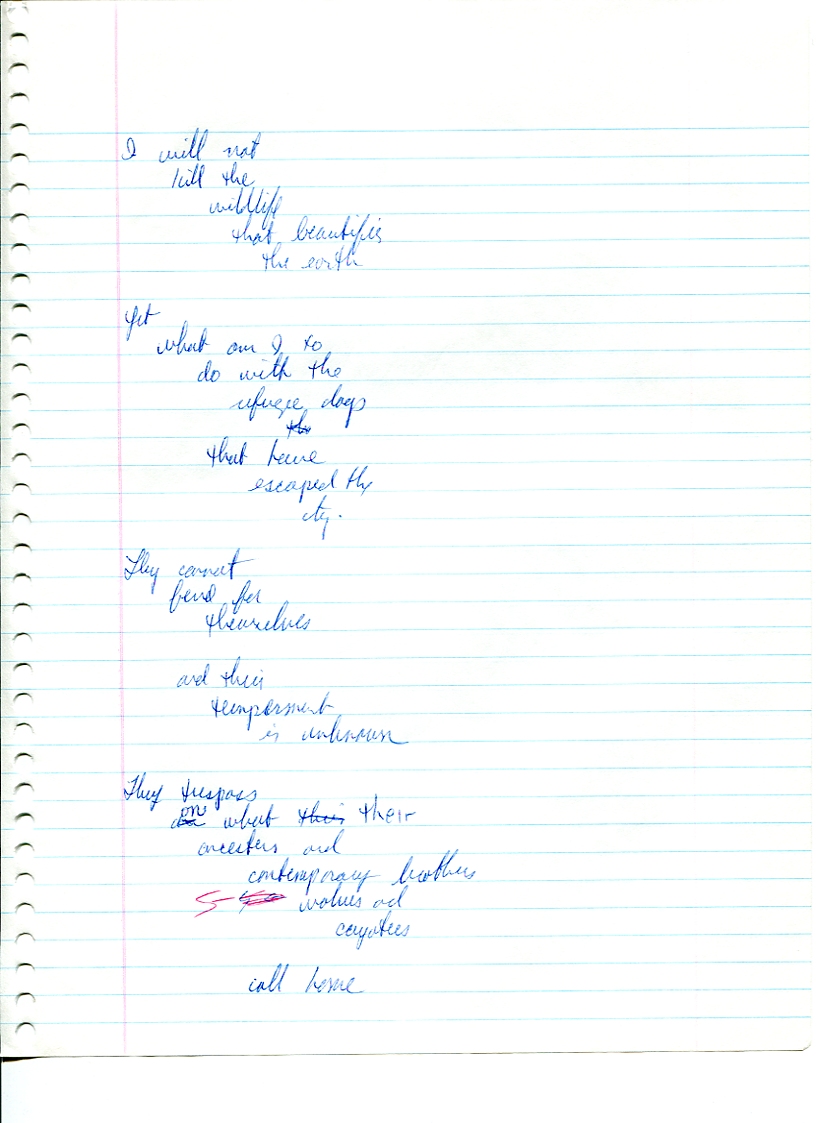 I will not
kill the
wildlife
that beautifies
the earth
Yet
what am I to
do with the
refugee dogs
th
that have
escaped the
city.
They cannot
fend for
themselves
and their
temperment
is unknown
They trespass
on what this their
ancestors and
contemporary brothers
5 wolves and
coyotees
call home